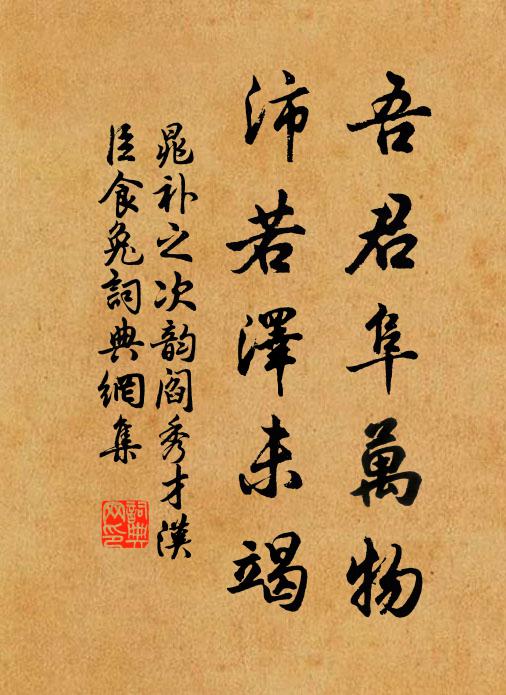 吾君阜萬物
沛若澤未竭
晁补之次韵阎秀才漢
臣食兔詞典網集
詞典
网印